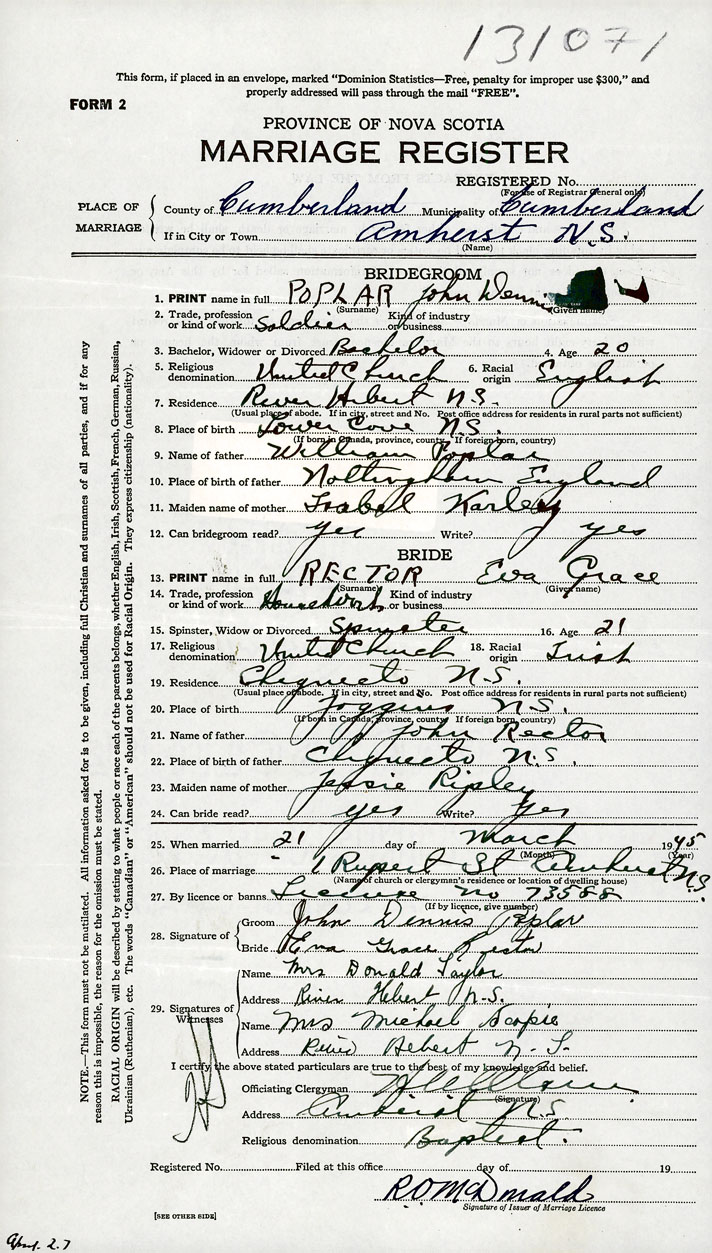 131071
This form, if placed in an envelope, marked “Dominion Statistics—Free, penalty for improper use $300,” and
properly addressed will pass through the mail “FREE”.
FORM 2
PROVINCE OF NOVA SCOTIA
MARRIAGE REGISTER
REGISTERED No.
(For use of Registrar General only)
PLACE OF MARRIAGE
County of Cumberland Municipality of Cumberland
If in City or Town Amherst N.S.
(Name)
BRIDEGROOM
1. PRINT name in full POPLAR John Dennis
(Surname) (Given name)
2. Trade, profession or kind of work Soldier Kind of industry or business
3. Bachelor, Widower or Divorced Bachelor 4. Age 20
5. Religious denomination United Church 6. Racial origin English
7. Residence River Hebert N.S.
(Usual place of abode. If in city, street and No. Post office address for residents in rural parts not sufficient)
8. Place of birth Lower Cove N.S.
(If born in Canada, province, county. If foreign born, country)
9. Name of father William Poplar
10. Place of birth of father Nottingham England
11. Maiden name of mother Isabel Karley
12. Can bridegroom read? yes Write? yes
BRIDE
13. PRINT name in full RECTOR Eva Grace
(Surname) (Given name)
14. Trade, profession or kind of work Housework Kind of industry or business
15. Spinster, Widow or Divorced Spinster 16. Age 21
17. Religious denomination United Church 18. Racial origin Irish
19. Residence Chignecto N.S.
(Usual place of abode. If in city, street and No. Post office address for residents in rural parts not sufficient)
20. Place of birth Joggins N.S.
(If born in Canada, province, county. If foreign born, country)
21. Name of father John Rector
22. Place of birth of father Chignecto N.S.
23. Maiden name of mother Jessie Ripley
24. Can bride read? yes Write? Yes
25. When married 21 day of March 1945
(Month) (Year)
26. Place of marriage 1 Rupert St Amherst N.S.
(Name of church or clergyman's residence or location of dwelling house)
27. By licence or banns License No 73588
(If by licence, give number)
28. Signature of
Groom John Dennis Poplar
Bride Eva Grace Rector
29. Signatures of Witnesses
Name Mrs Donald Taylor
Address River Hebert N.S.
Name Mrs Michael
Address River Hebert N.S.
I certify the above stated particulars are true to the best of my knowledge and belief.
Officiating Clergyman
(Signature)
Address Amherst N.S
Religious denomination Baptist.
Registered No. Filed at this office day of 19
R O McDonald
Signature of Issuer of Marriage Licence
[SEE OTHER SIDE]
NOTE.—This form must not be mutilated. All information asked for is to be given, including full Christian and surnames of all parties, and if for any
reason this is impossible, the reason for the omission must be stated.
RACIAL ORIGIN will be described by stating to what people or race each of the parents belongs, whether English, Irish, Scottish, French, German, Russian,
Ukrainian (Ruthenian), etc. The words “Canadian” or “American” should not be used for Racial Origin. They express citizenship (nationality).